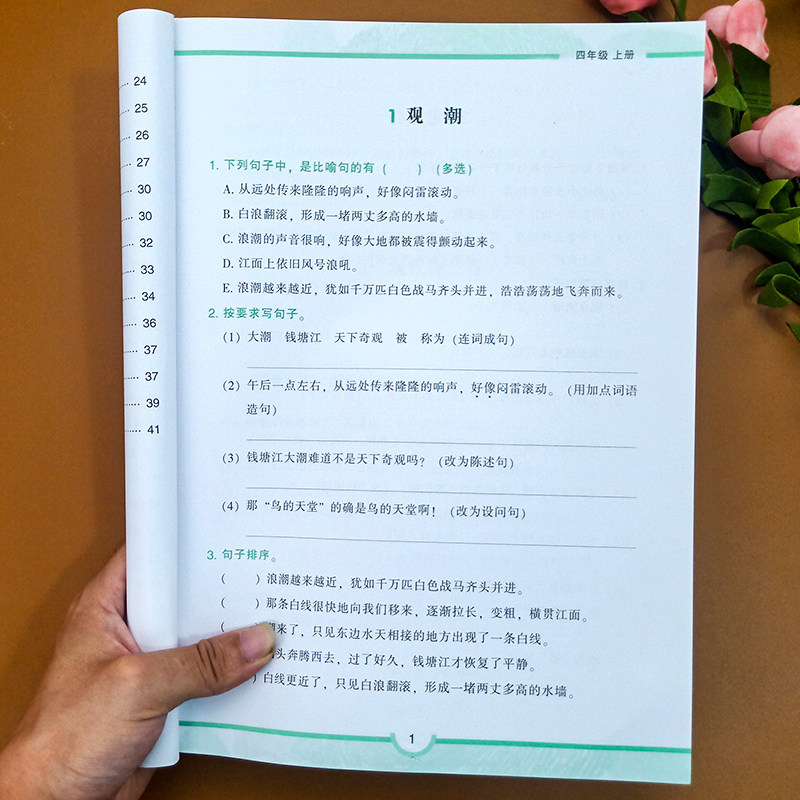 24
25
26
27
30
30
32
33
34
36
37
37
39
41
四年级 上册
1 观 潮
1. 下列句子中，是比喻句的有（ ）（多选）
A. 从远处传来隆隆的响声，好像闷雷滚动。
B. 白浪翻滚，形成一堵两丈多高的水墙。
C. 浪潮的声音很响，好像大地都被震得颤动起来。
D. 江面上依旧风号浪吼。
E. 浪潮越来越近，犹如千万匹白色战马齐头并进，浩浩荡荡地飞奔而来。
2. 按要求写句子。
（1）大潮 钱塘江 天下奇观 被 称为（连词成句）
（2）午后一点左右，从远处传来隆隆的响声，好像闷雷滚动。（用加点词语
造句）
（3）钱塘江大潮难道不是天下奇观吗？（改为陈述句）
（4）那“鸟的天堂”的确是鸟的天堂啊！（改为设问句）
3. 句子排序。
（ ）浪潮越来越近，犹如千万匹白色战马齐头并进。
（ ）那条白线很快地向我们移来，逐渐拉长，变粗，横贯江面。
（ 来了，只见东边水天相接的地方出现了一条白线。
头奔腾西去，过了好久，钱塘江才恢复了平静。
）白线更近了，只见白浪翻滚，形成一堵两丈多高的水墙。
1